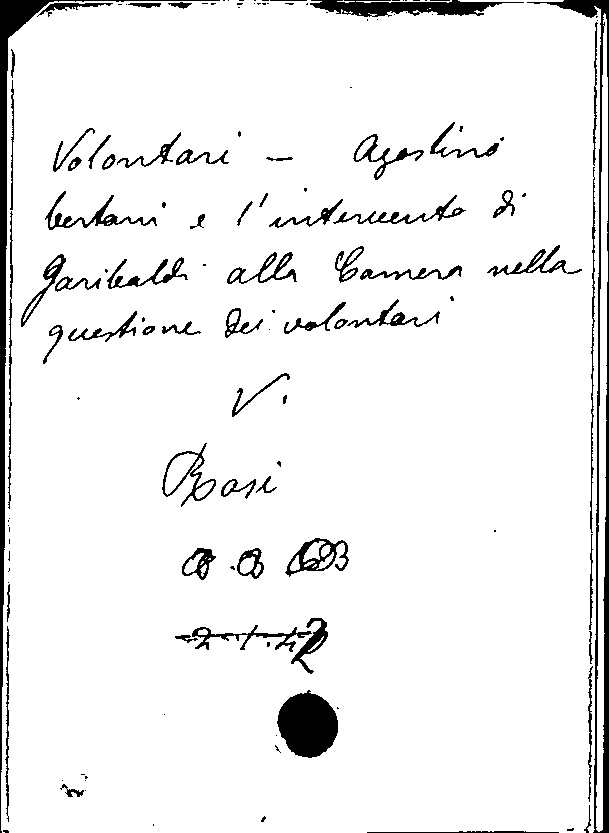 Volontari — Agostino
bertani e l'intervento di
Garibaldi alla Camera nella
questione dei volontari
V.
Rosi